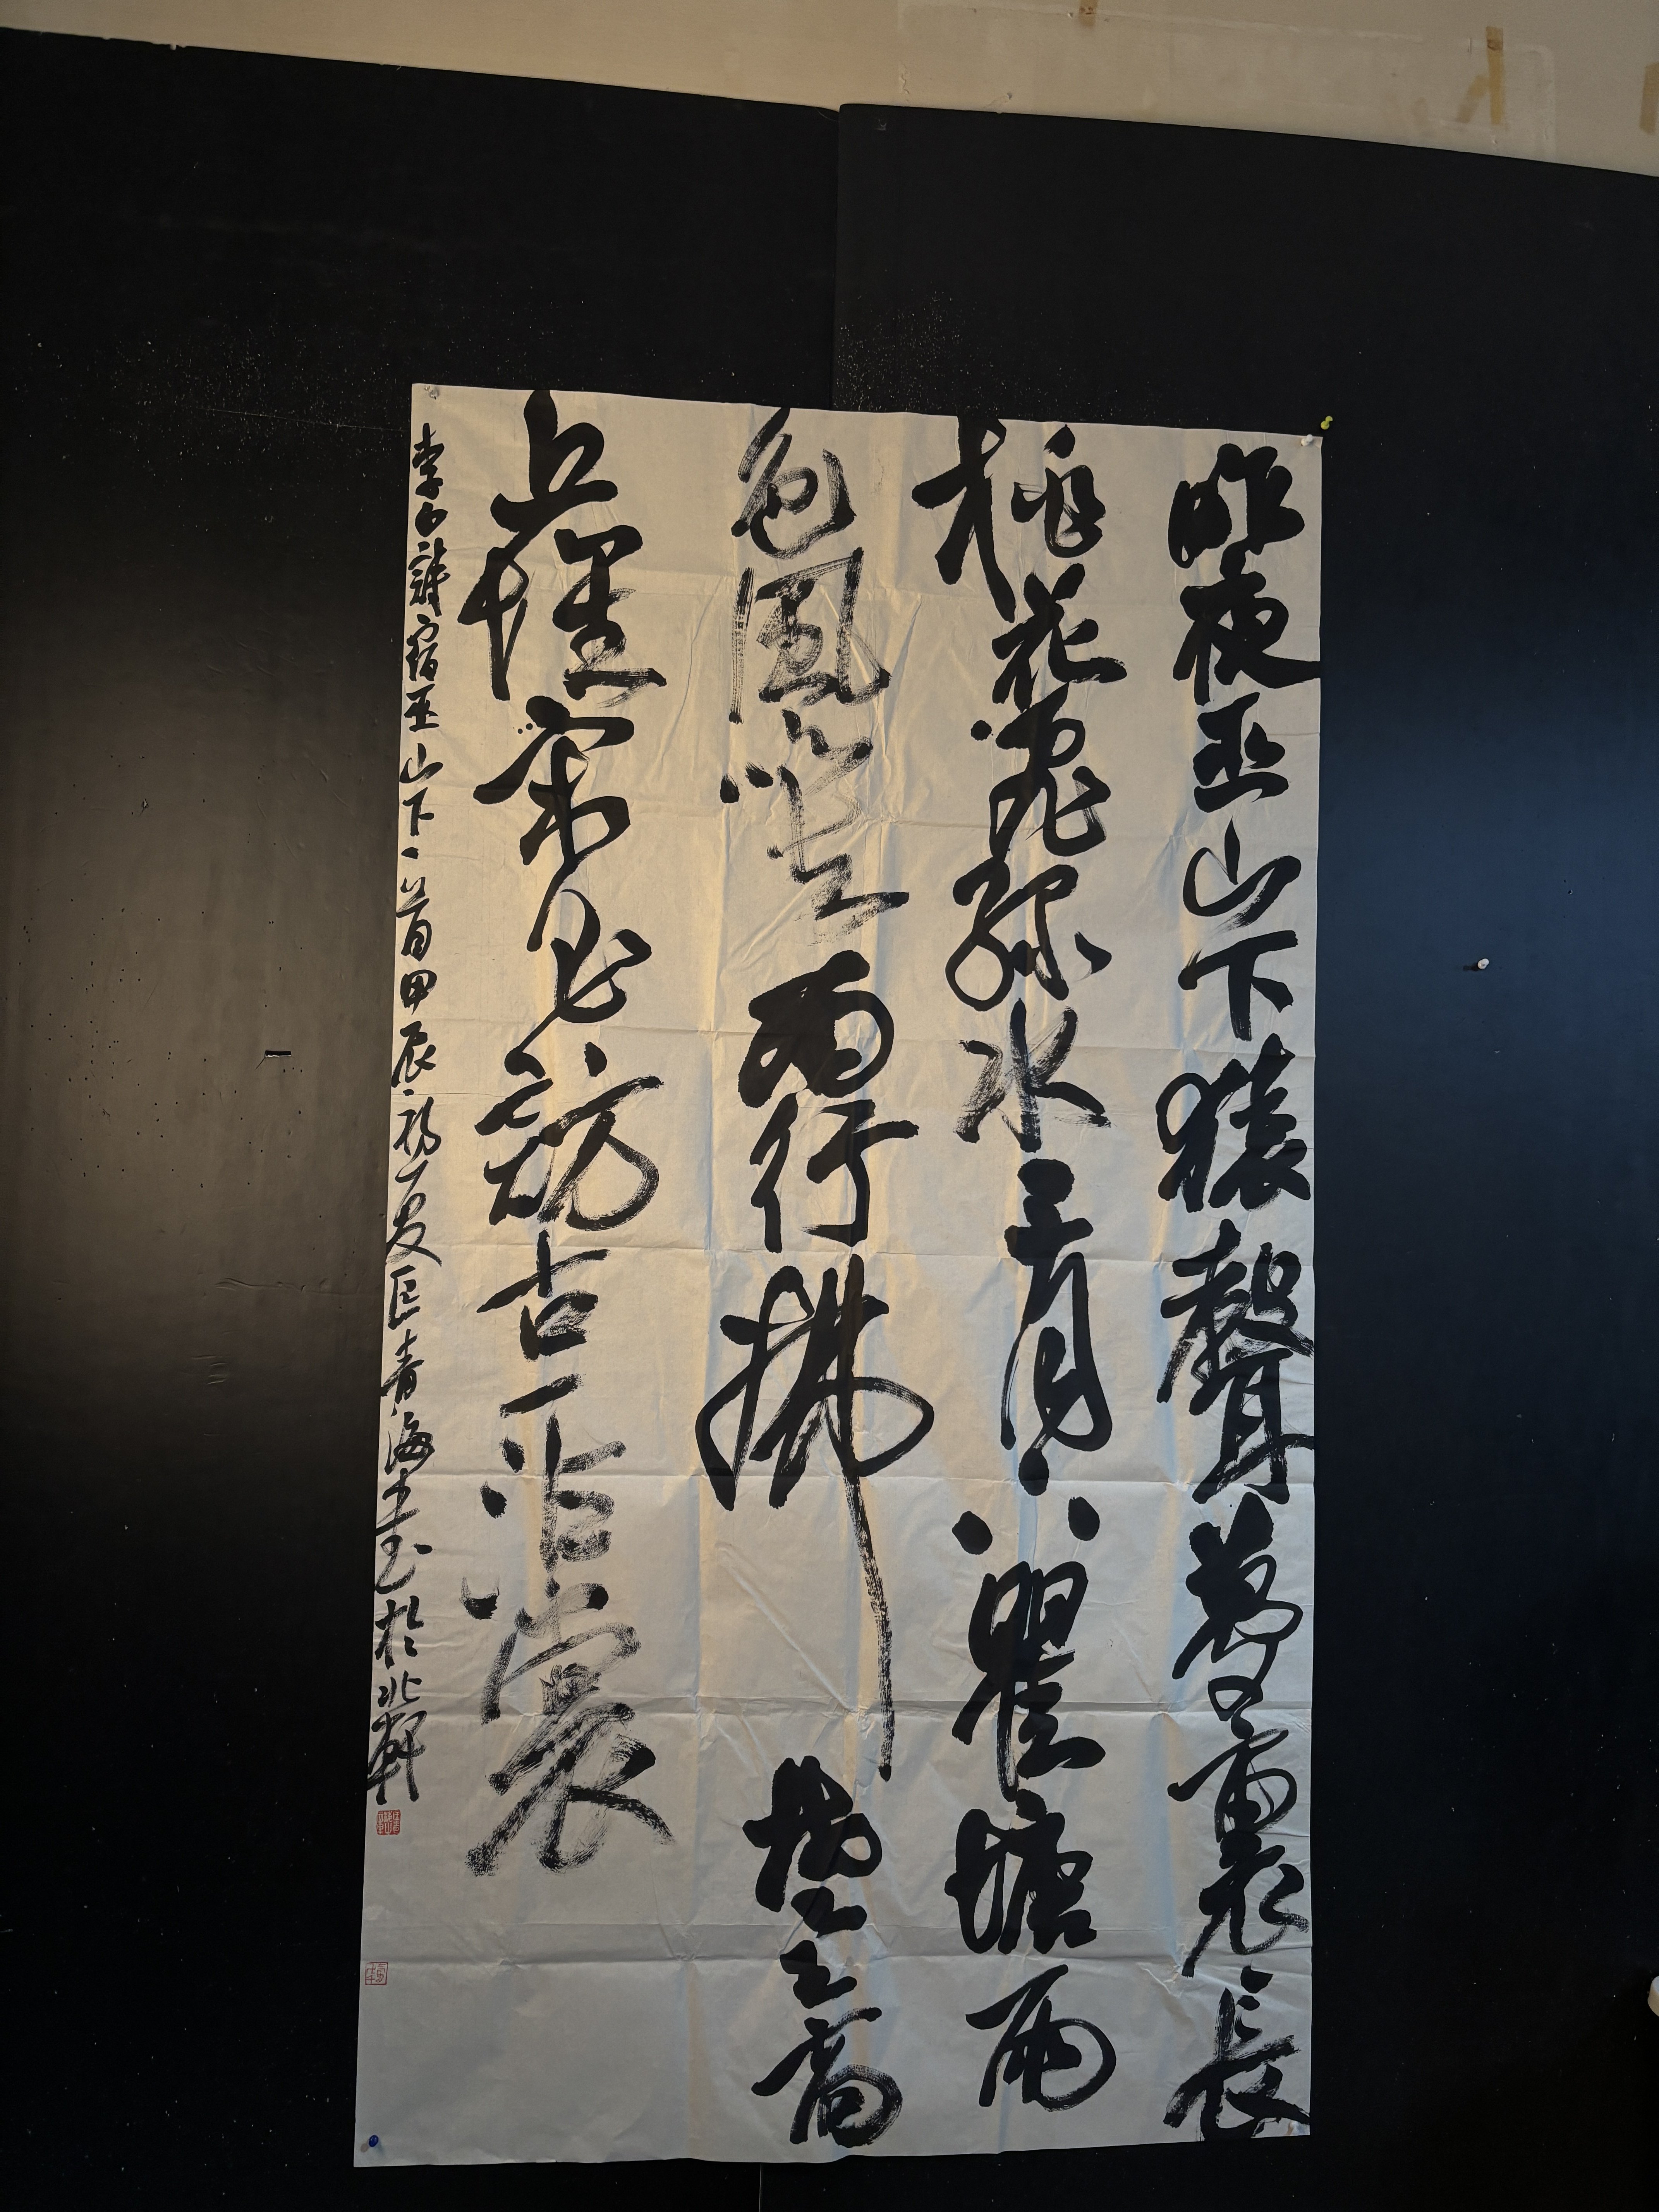 昨夜巫山下猿聲夢裏長
桃花飛綠水三月下瞿塘雨
色風吹去南行拂楚王高
丘懷宋玉訪古一沾裳
李白詩宿巫山下一首甲辰初夏匡青海書於北軒